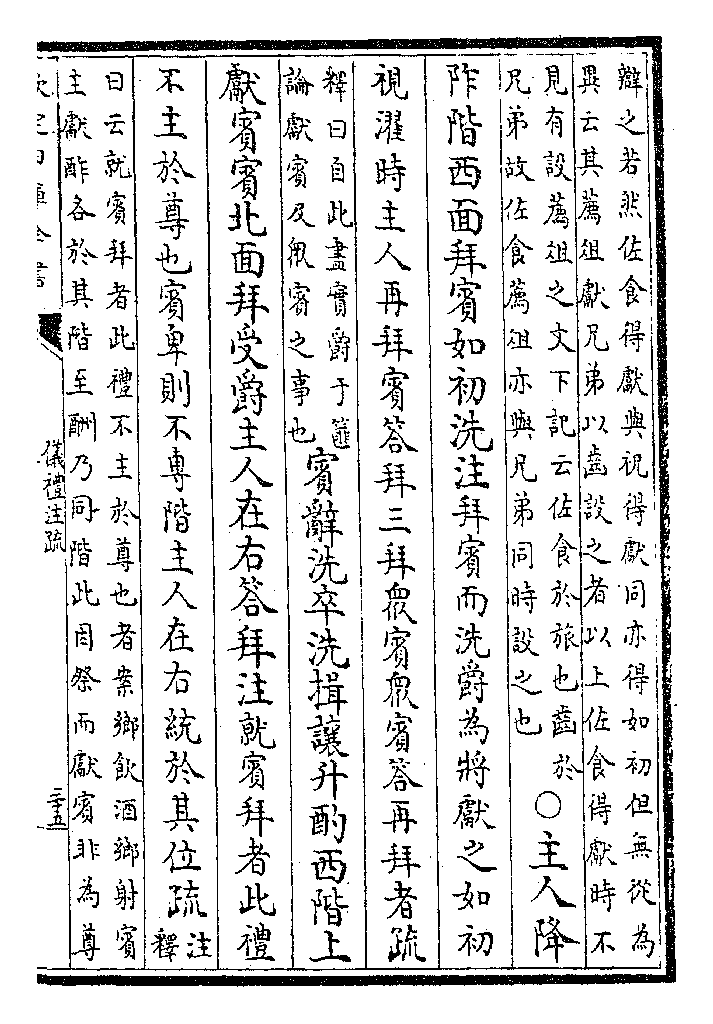 辯之若然佐食得獻與祝得獻同亦得如初但無從為
異云其薦俎獻兄弟以齒設之者以上佐食得獻時不
見有設薦俎之文下記云佐食於旅也齒於
兄弟故佐食薦俎亦與兄弟同時設之也
○主人降
阼階西面拜賓如初洗注拜賓而洗爵為將獻之如初
視濯時主人再拜賓荅拜三拜衆賓衆賓荅再拜者疏
釋曰自此盡實爵于篚
論獻賓及衆賓之事也
賓辭洗卒洗揖讓升酌西階上
獻賓賓北面拜受爵主人在右荅拜注就賓拜者此禮
不主於尊也賓卑則不專階主人在右統於其位疏
注
釋
曰云就賓拜者此禮不主於尊也者案鄉飲酒鄉射賓
主獻酢各於其階至酬乃同階此因祭而獻賓非為尊
儀禮注疏
二十五